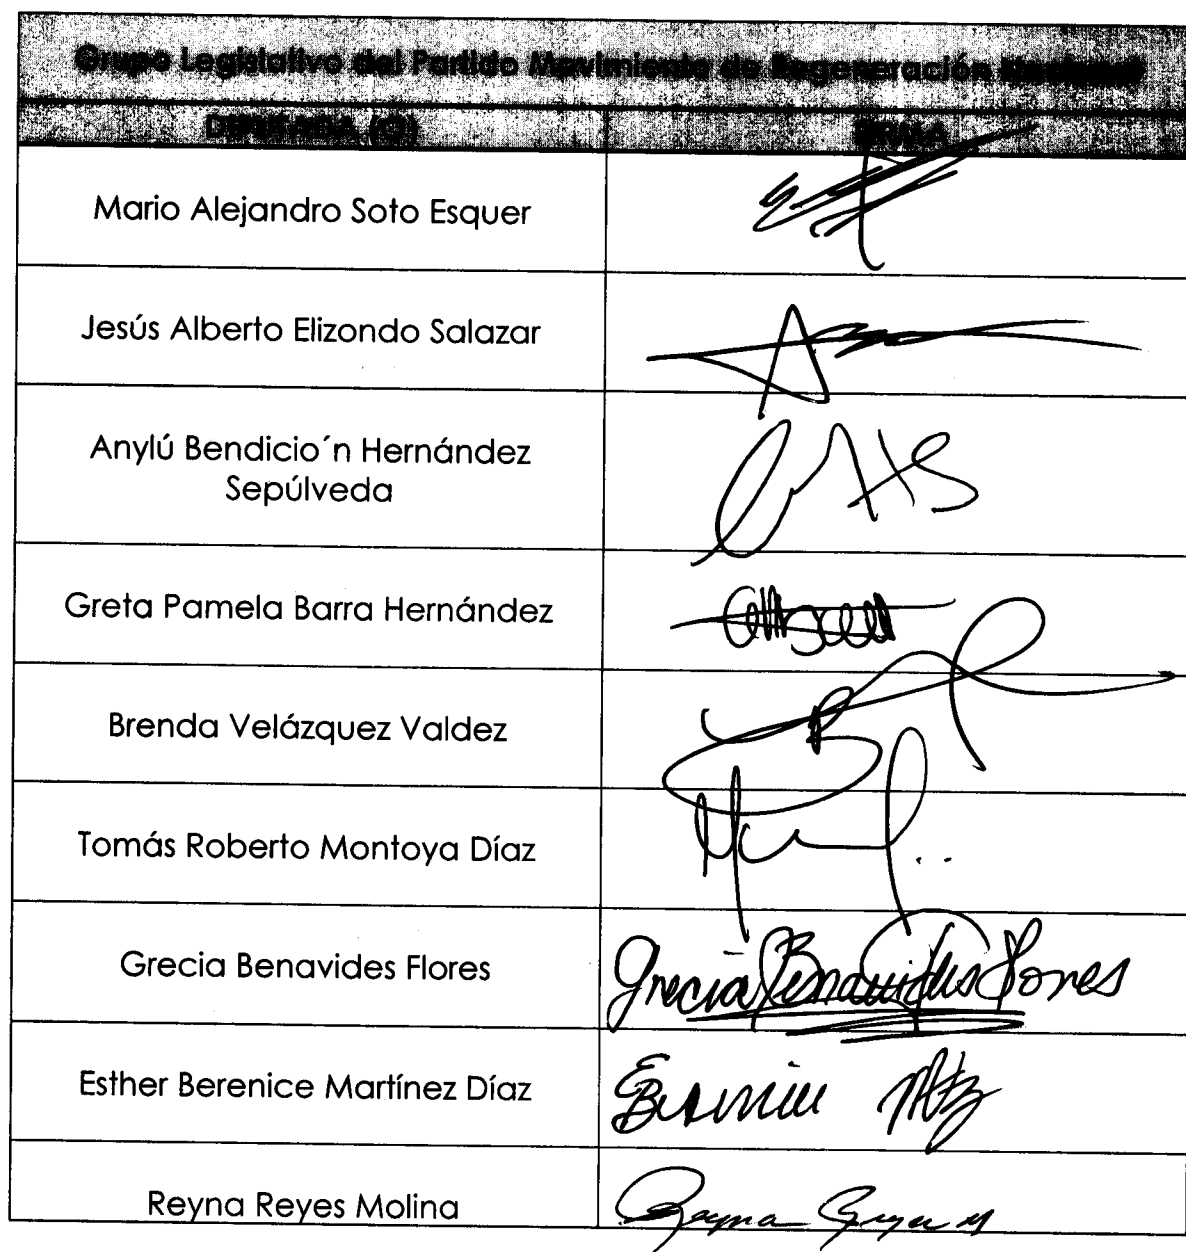 Grupo Legislativo del Partido Movimiento de Regeneración Nacional
DIPUTADA (O) FIRMA
Mario Alejandro Soto Esquer
Jesús Alberto Elizondo Salazar
Anylú Bendicio´n Hernández
Sepúlveda
Greta Pamela Barra Hernández
Brenda Velázquez Valdez
Tomás Roberto Montoya Díaz
Grecia Benavides Flores Grecia Benavides Flores
Esther Berenice Martínez Díaz
Reyna Reyes Molina